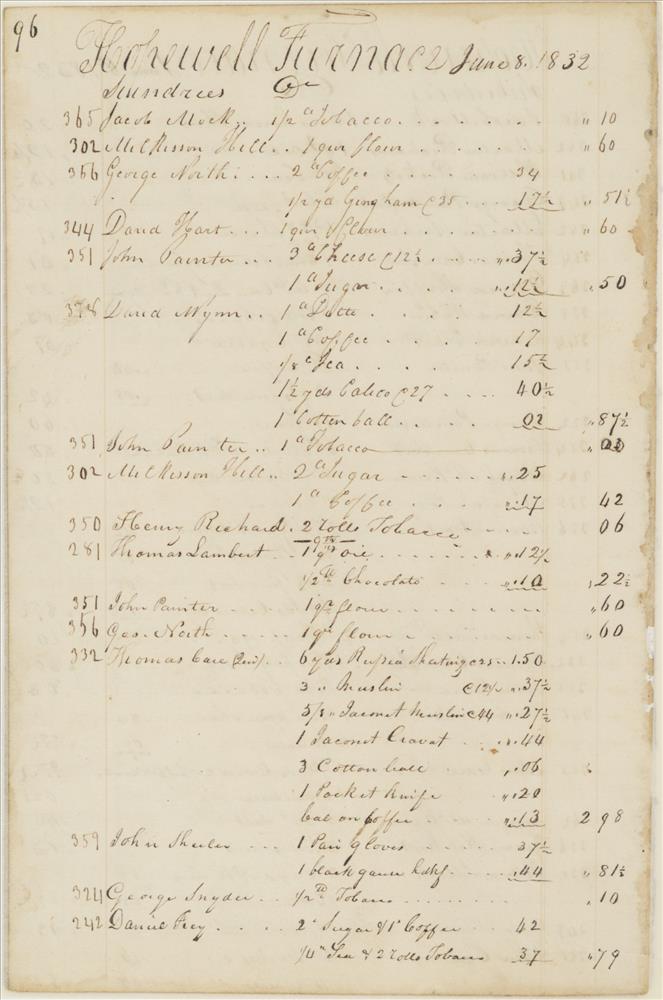 96
Hopewell Furnace June 8. 1832
Sundrees Dr
365 Jacob Mock.. 1/2 " Tobacco . . . . . . . " 10
302 Milkisson Hill.. 1 qur flour . . . . . " 60
356 George North: ... 2 " Coffee . . . . 34
1/2 yd Gingham @ 35 . . . 17 1/2 " 51 1/2
344 David Hart . . . 1 qur flour . . . . . " 60
351 John Painter . . . 3 " Cheese @ 12 1/2 . . . . ". 37 1/2
1 " Sugar . . . . ". 12 1/2 " 50
378 David Wynn . . 1 " Ditto . . . . 12 1/2
1 " Coffee . . . . 17
1/8 " Tea . . . . 15 1/2
1 1/2 yds Calico @ 27 . . . . 40 1/2
1 Cotten ball . . . . 02 " 87 1/2
351 John Painter .. 1 " Tobacco "
302 Milkisson Hill .. 2 " Sugar . . . . ". 25
1 " Coffee . . . ". 17 42
350 Henry Richard . 2 rolls Tobacco - - - - 06
281 Thomas Lambert . . 1 . . . . . " ". 12 1/2
1/2 " Chocolate . . . ". 10 " 22 1/2
351 John Painter . . . . 1 qr flour . . . . . . . . " 60
356 Geo. North . . . . . 1 qr flour . . . . . . " 60
332 Thomas Care . . 6 yds Russia Sheeting @ 25 .. 1.50
3 " Muslin @ 12 1/2 ". 37 1/2
5/8 " Jaconet Muslin @ 44 ". 27 1/2
1 Jaconet Cravat . . . ". 44
3 Cotton ball . . ". 06
1 Pocket Knife . . ". 20
bal on Coffee . . . ". 13 2 98
359 John Sheeler . . . 1 Pair Gloves . . . . 37 1/2
1 black gauze hdkf . . . . 44 " 81 1/2
324 George Snyder . . 1/2 " Tobacco . . . . . . . " 10
242 Daniel Frey . . . . 2 " Sugar & 1 " Coffee . . . 42
1/4 " Tea & 2 rolls Tobacco 37 " 79